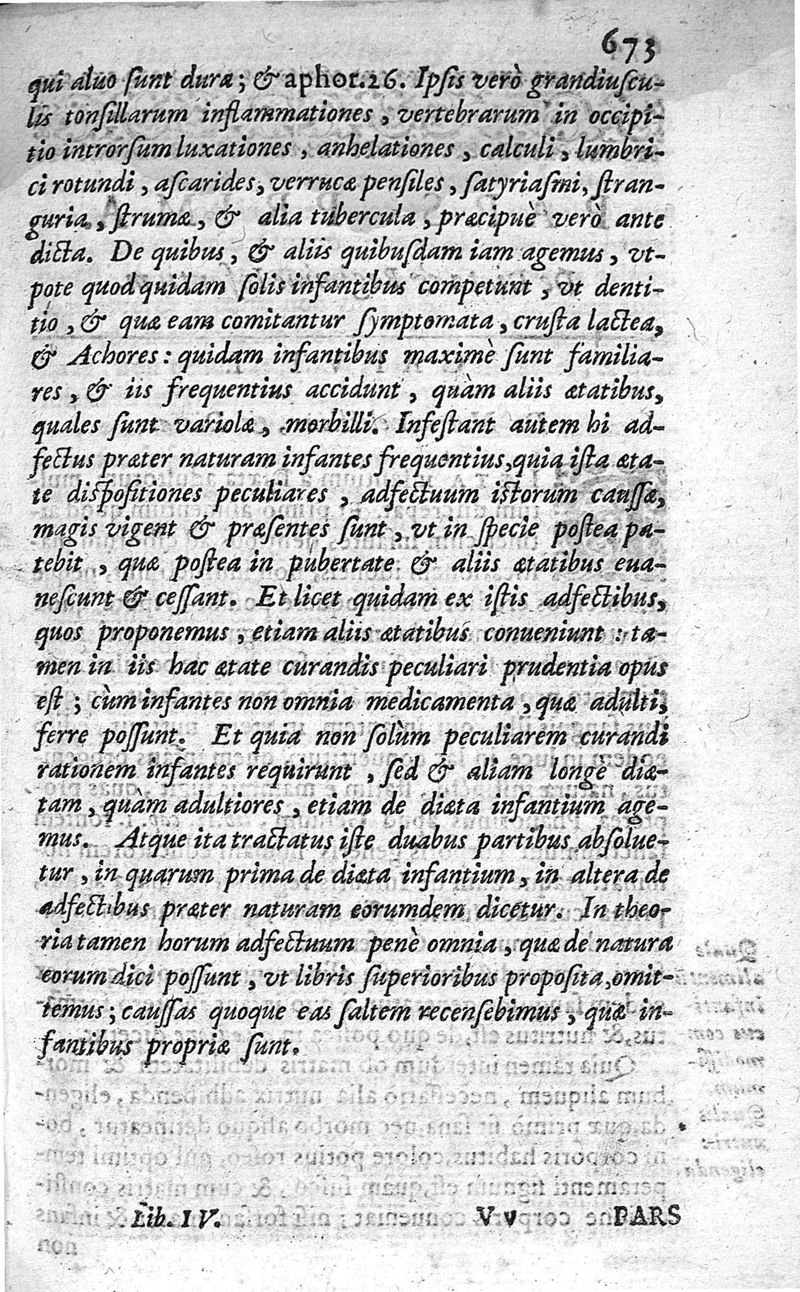 673
qui aluo ſunt duræ; & aphor.26. Ipſis verò grandiuſcu-
lis tonſillarum inflammationes, vertebrarum in occipi-
tio introrſum luxationes, anhelationes, calculi, lumbri-
ci rotundi, aſcarides, verrucæ penſiles, ſatyriaſmi, ſtran-
guria, ſtrumæ, & alia tubercula, præcipuè verò ante
dicta. De quibus, & aliis quibuſdam iam agemus, vt-
pote quod quidam ſolis infantibus competunt, vt denti-
tio, & quæ eam comitantur ſymptomata, cruſta lactea,
& Achores: quidam infantibus maximè ſunt familia-
res, & iis frequentius accidunt, quàm aliis ætatibus,
quales ſunt variolæ, morbilli. Infeſtant autem hi ad-
fectus præter naturam infantes frequentius, quia iſta æta-
te diſpoſitiones peculiares, adfectuum iſtorum cauſſæ,
magis vigent & præſentes ſunt, vt in ſpecie poſtea pa-
tebit, quæ poſtea in pubertate & aliis ætatibus eua-
neſcunt & ceſſant. Et licet quidam ex iſtis adfectibus,
quos proponemus, etiam aliis ætatibus conueniunt: ta-
men in iis hac ætate curandis peculiari prudentia opus
eſt; cùm infantes non omnia medicamenta, quæ adulti,
ferre poſſunt. Et quia non ſolùm peculiarem curandi
rationem infantes requirunt, ſed & aliam longè diæ-
tam, quàm adultiores, etiam de diæta infantium age-
mus. Atque ita tractatus iſte duabus partibus abſolue-
tur, in quarum prima de diæta infantium, in altera de
adfectibus præter naturam eorumdem dicetur. In theo-
ria tamen horum adfectuum penè omnia, quæ de natura
eorum dici poſſunt, vt libris ſuperioribus propoſita, omit-
temus; cauſſas quoque eas ſaltem recenſebimus, quæ in-
fantibus propriæ ſunt.
Lib. IV. Vv PARS